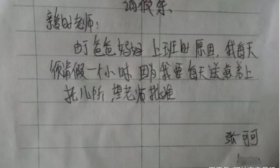 请假条
亲爱的老师：
由于爸爸妈妈上班的原因，我每天
请假一个小时因为我要每天送弟弟上
托儿所望老师批准
张可可